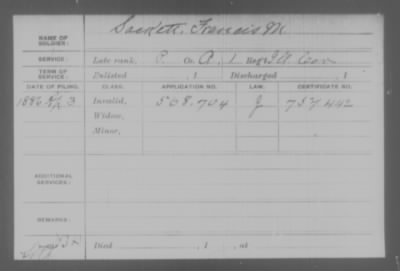 NAME OF SOLDIER: Sackett, Francis M.
SERVICE: Late rank, P. Co. A, 1 Reg't Ia Cav
TERM OF SERVICE: Enlisted , 1 Discharged , 1
DATE OF FILING. CLASS. APPLICATION NO. LAW. CERTIFICATE NO.
1886 3 Invalid, 568.704 J 757.442
Widow,
Minor,
ADDITIONAL SERVICES:
REMARKS:
Died , 1 , at